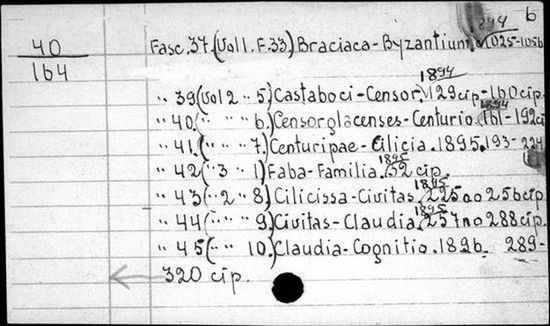 6
40
164
1894
Fasc. 37. (Vol 1. F. 33) Braciaca - Byzantium. 1025-1056
1894
" 39 (Vol 2 " 5) Castaboci - Censor. 129 cip - 160 cip.
1894
" 40. ( " " 6) Censorglacenses - Centurio. 161 - 192 ci
" 41. ( " " 7.) Centuripae - Cilicia. 1895. 193 - 224
1895
" 42 ( " 3 " 1) Faba - Familia. 32 cip.
1895
" 43 ( " 2 " 8) Cilicissa - Civitas. 225 ao 256 cip
1895
" 44 ( " " " 9.) Civitas - Claudia. 257 ao 288 cip.
" 45 ( " " " 10.) Claudia - Cognitio. 1896. 289 -
320 cip.